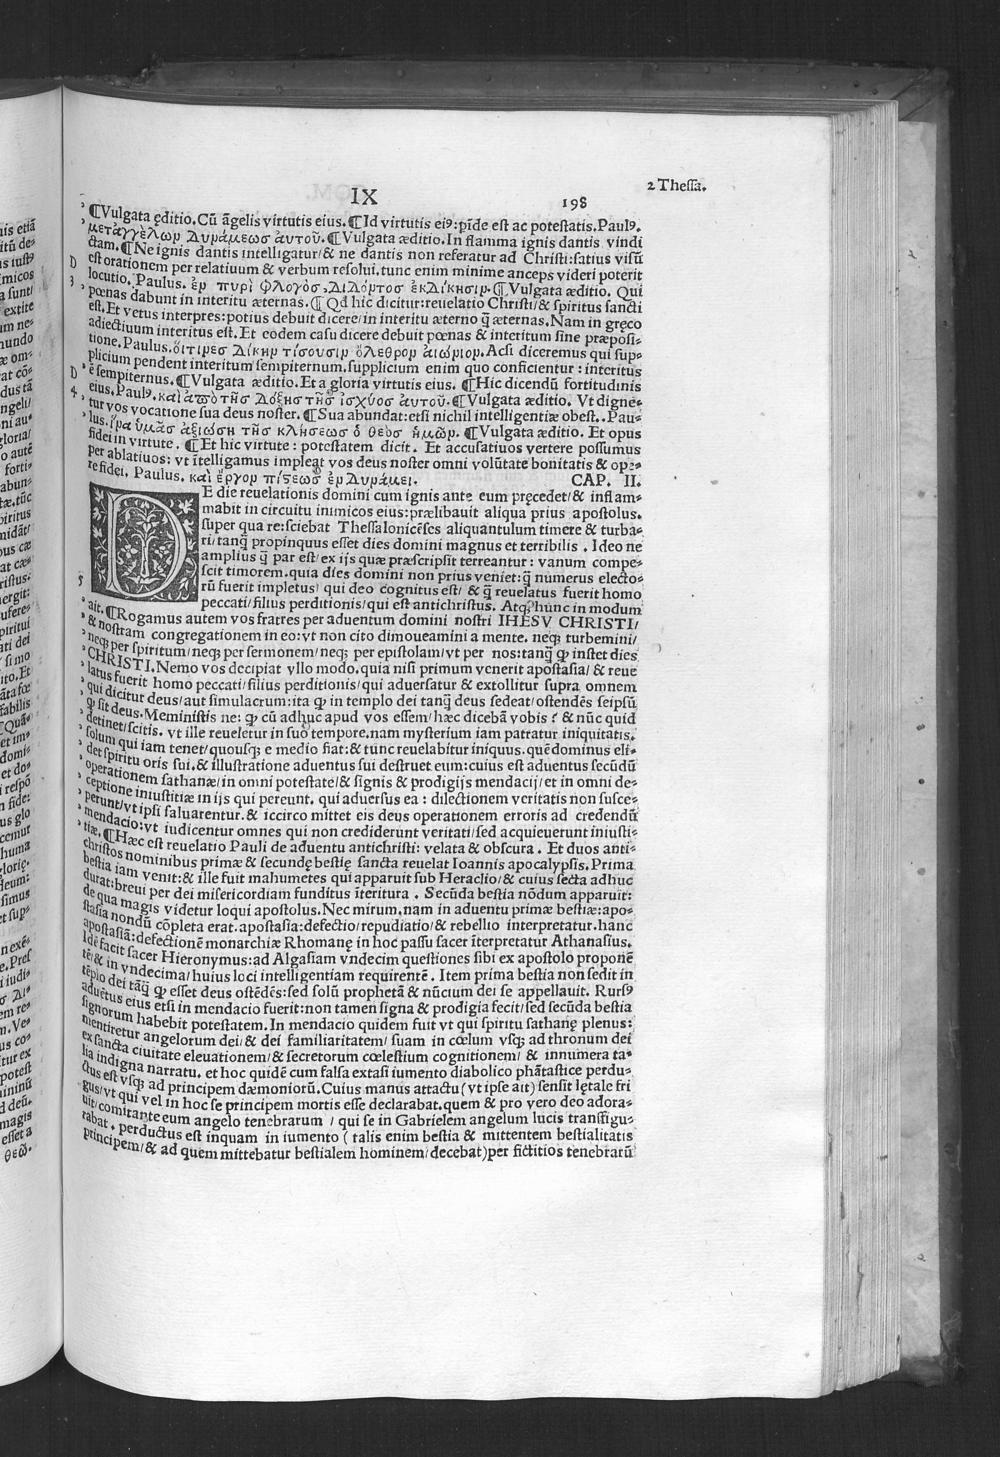 IX
198
2 Thessa.
¶Vulgata ęditio. Cũ ãgelis virtutis eius. ¶Id virtutis eiꝰ: pĩde est ac potestatis. Paulꝰ.
μετἀγγέλων Δυνάμεωσ ἀυτοῦ. ¶Vulgata æditio. In flamma ignis dantis vindi
ctam. ¶Ne ignis dantis intelligatur/ & ne dantis non referatur ad Christi: satius visũ
D est orationem per relatiuum & verbum resolui. tunc enim minime anceps videri poterit
3 locutio. Paulus. ἐν πυρὶ φλογὸσ. Διδόντοσ ἐκδίκησιν. ¶Vulgata æditio. Qui
pœnas dabunt in interitu æternas. ¶Qđ hic dicitur: reuelatio Christi/ & spiritus sancti
est. Et vetus interpres: potius debuit dicere/ in interitu æterno q̃ æternas. Nam in gręco
adiectiuum interitus est. Et eodem casu dicere debuit pœnas & interitum sine præposi-
tione. Paulus. ὅιτινεσ Δίκην τίσουσιν ὄλεθρον ἀιώνιον. Acsi diceremus qui sup-
plicium pendent interitum sempiternum. supplicium enim quo conficientur: interitus
D ẽ sempiternus. ¶Vulgata æditio. Et a gloria virtutis eius. ¶Hic dicendũ fortitudinis
4 eius. Paulꝰ. καὶ ἀπὸ τῆσ Δόξησ τῆσ ἰσχύοσ ἀυτοῦ. ¶Vulgata æditio. Vt digne-
tur vos vocatione sua deus noster. ¶Sua abundat: etsi nichil intelligentiæ obest. . Pau-
lus. ἵνα ὑμᾶσ ἀξιώση τῆσ κλήσεωσ ὁ θεὸσ ἡμῶν. ¶Vulgata æditio. Et opus
fidei in virtute. ¶Et hic virtute: potestatem dicit. Et accusatiuos vertere possumus
per ablatiuos: vt ĩtelligamus impleat vos deus noster omni volũtate bonitatis & ope-
re fidei. Paulus. καὶ ἔργον πίστεωσ ἐν Δυνάμει. CAP. II.
DE die reuelationis domini cum ignis ante eum pręcedet/ & inflam-
mabit in circuitu inimicos eius: prælibauit aliqua prius apostolus.
super qua re: sciebat Thessalonicẽses aliquantulum timere & turba-
ri/ tanq̃ propinquus esset dies domini magnus et terribilis . Ideo ne
amplius q̃ par est/ ex ijs quæ præscripsit terreantur : vanum compe-
scit timorem. quia dies domini non prius veniet: q̃ numerus electo-
5 rũ fuerit impletus/ qui deo cognitus est/ & q̃ reuelatus fuerit homo
peccati/ filius perditionis/ qui est antichristus. Atqꝫ hunc in modum
ait. ¶Rogamus autem vos fratres per aduentum domini nostri IHESV CHRISTI/
& nostram congregationem in eo: vt non cito dimoueamini a mente. neqꝫ turbemini/
neqꝫ per spiritum/ neqꝫ per sermonem/ neqꝫ per epistolam/ vt per nos: tanq̃ ꝙ instet dies
CHRISTI. Nemo vos decipiat vllo modo. quia nisi primum venerit apostasia/ & reue
latus fuerit homo peccati/ filius perditionis/ qui aduersatur & extollitur supra omnem
qui dicitur deus/ aut simulacrum: ita ꝙ in templo dei tanq̃ deus sedeat/ ostendẽs seipsũ
ꝙ sit deus. Meministis ne: ꝙ cũ adhuc apud vos essem/ hæc dicebã vobis? & nũc quid
detinet/ scitis. vt ille reueletur in suo tempore. nam mysterium iam patratur iniquitatis.
solum qui iam tenet/ quousqꝫ e medio fiat: & tunc reuelabitur iniquus. quẽ dominus eli-
det spiritu oris sui. & illustratione aduentus sui destruet eum: cuius est aduentus secũdũ
operationem sathanæ/ in omni potestate/ & signis & prodigijs mendacij/ et in omni de-
ceptione iniustitiæ in ijs qui pereunt. qui aduersus ea : dilectionem veritatis non susce-
perunt/ vt ipsi saluarentur. & iccirco mittet eis deus operationem erroris ad credendũ
mendacio: vt iudicentur omnes qui non crediderunt veritati/ sed acquieuerunt iniusti-
tiæ. ¶Hæc est reuelatio Pauli de aduentu antichristi: velata & obscura . Et duos anti-
christos nominibus primæ & secundę bestię sancta reuelat Ioannis apocalypsis. Prima
bestia iam venit: & ille fuit mahumetes qui apparuit sub Heraclio/ & cuius secta adhuc
durat: breui per dei misericordiam funditus ĩteritura . Secũda bestia nõdum apparuit:
de qua magis videtur loqui apostolus. Nec mirum. nam in aduentu primæ bestiæ: apo-
stasia nondũ cõpleta erat. apostasia: defectio/ repudiatio/ & rebellio interpretatur. hanc
apostasiã: defectionẽ monarchiæ Rhomanę in hoc passu sacer ĩterpretatur Athanasius.
Idẽ facit sacer Hieronymus: ad Algasiam vndecim questiones sibi ex apostolo proponẽ
tẽ/ & in vndecima/ huius loci intelligentiam requirentẽ . Item prima bestia non sedit in
tẽplo dei tãq̃ ꝙ esset deus ostẽdẽs: sed solũ prophetã & nũcium dei se appellauit. Rursꝰ
aduẽtus eius etsi in mendacio fuerit: non tamen signa & prodigia fecit/ sed secũda bestia
signorum habebit potestatem. In mendacio quidem fuit vt qui spiritu sathanę plenus:
mentiretur angelorum dei/ & dei familiaritatem/ suam in cœlum vsqꝫ ad thronum dei
ex sancta ciuitate eleuationem/ & secretorum cœlestium cognitionem/ & innumera ta-
lia indigna narratu. et hoc quidẽ cum falsa extasi iumento diabolico phãtastice perdu-
ctus est vsqꝫ ad principem dæmoniorũ. Cuius manus attactu (vt ipse ait) sensit lętale fri
gus/ vt qui vel in hoc se principem mortis esse declarabat. quem & pro vero deo adora-
uit/ comitante eum angelo tenebrarum / qui se in Gabrielem angelum lucis transfigu-
rabat . perductus est inquam in iumento (talis enim bestia & mittentem bestialitatis
principem/ & ad quem mittebatur bestialem hominem/ decebat) per fictitios tenebrarũ